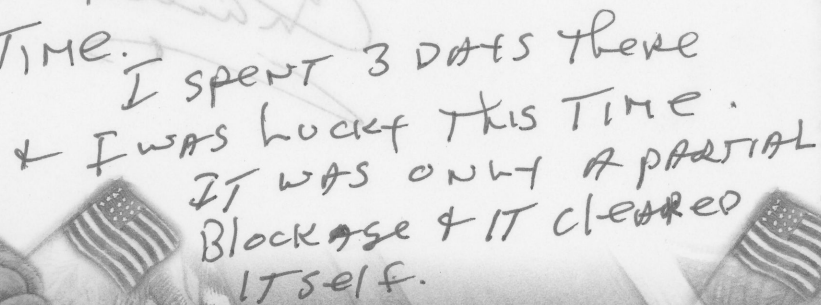 TIME.
I SPENT 3 DAYS THERE
& I WAS LUCKY THIS TIME.
IT WAS ONLY A PARTIAL
BLOCKAGE & IT CLEARED
ITSELF.